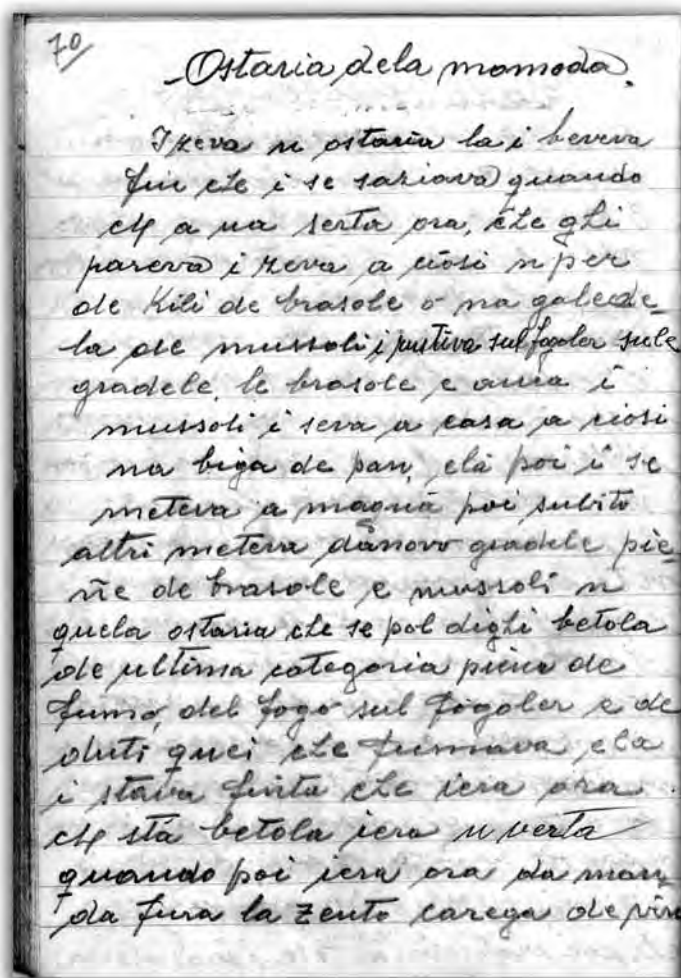 70
Ostaria dela momoda.
I zeva n ostaria la i beveva
fin che i se saziava quando
a na serta ora, che ghi
pareva i zeva a ciosi n per
de Kili de brasole o na galede-
la de mussoli i metiva sul fogoler sule
gradele, le brasole e anca i
mussoli i seva a casa a ciosi
na biga de pan, elà poi i se
meteva a magnà poi subito
altri meteva dànovo gradele pie-
ne de brasole e mussoli n
quela ostaria che se pol dighi betola
de ultima categoria piena de
fumo, del fogo sul fogoler e de
duti quei che fumava, ela
i stava finta che iera ora
stà betola iera n verta
quando poi iera ora da man
da fura la zento carega de vin